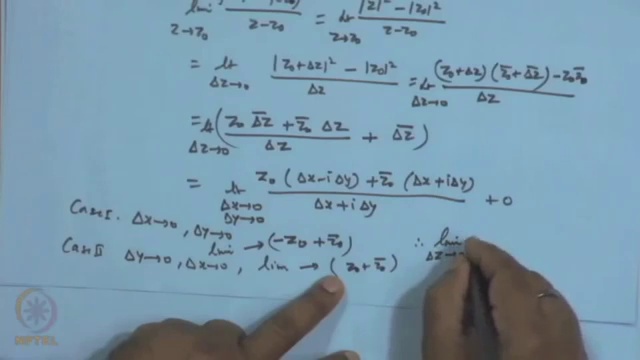 lim z→z₀ z-z₀ = lt z→z₀ |z|² - |z₀|² / z-z₀
= lt Δz→0 |z₀+Δz|² - |z₀|² / Δz = lt Δz→0 (z₀+Δz)(z̅₀+Δz̅) - z₀z̅₀ / Δz
= lt Δz→0 (z₀ Δz̅ + z̅₀ Δz / Δz + Δz̅)
= lt Δx→0 Δy→0 z₀(Δx-iΔy) + z̅₀(Δx+iΔy) / Δx+iΔy + 0
Case I. Δx→0, Δy→0 lim → (-z₀ + z̅₀)
Case II Δy→0, Δx→0, lim → (z₀ + z̅₀) ∴ lim Δz→0
NPTEL